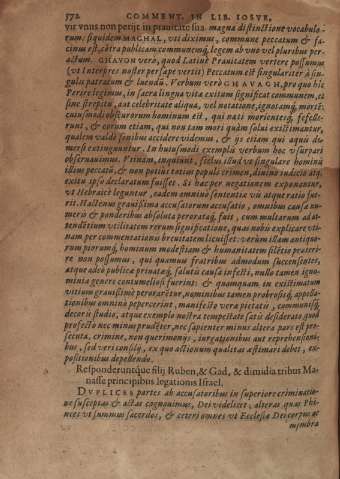 572 COMMENT. IN LIB. IOSVE,
vir vnus non perijt in prauitate sua. magna distinctione vocabulo-
rum. siquidem MAGHAL, vti diximus, commune peccatum & fa-
cinus est, cōtra publicam communemq́; legem ab vno vel pluribus per-
actum. GHAVON verò, quod Latinè Prauitatem vertere possumus
(vt Interpres noster persæpe vertit) Peccatum est singulariter à sin-
gulis patratum & luendū. Verbum verò GHAVAGH, pro quo hîc
Perire legimus, in sacra lingua vitæ exitum significat communem, et
sine strepitu, aut celebritate aliqua, vel notatione, ignotamq́; mortē,
cuiusmodi obscurorum hominum est, qui nati morientesq́; fefelle-
runt, & eorum etiam, qui non tam mori quàm solui existimantur,
qualem valdè senibus accidere videmus, & ijs etiam qui aqua de-
mersi extinguuntur. In huiusmodi exempla verbum hoc vsurpari
obseruauimus. Vtinam, inquiunt, sceleris illud vt singulare hominis
vnius peccatū, & non potius totius populi crimen, diuino iudicio atq́;
exitu ipso declaratum fuisset. Si hæc per negationem exponantur,
vt Hebraicè leguntur, eadem omninò sententia vti atque ratio fue-
rit. Hactenus grauissima accusatorum accusatio, omnibus causæ nu-
meris & ponderibus absoluta perorataq́; fuit, cum multarum ad at-
tendētium vtilitatem rerum significatione, quas nobis explicare vti-
nam per commentationis breuitatem licuisset: verùm illam antiquo-
rum piorumq́; hominum modestiam & humanitatem silētio præteri-
re non possumus, qui quamuis fratribus admodum succenserent,
atque adeò publicæ priuatæq́; salutis causa infesti, nullo tamen igno-
miniæ genere contumeliosi fuerint: & quamquam in existimatum
vitium grauissimè peroraretur, nominibus tamen probrosisq́; appella-
tionibus omninò pepercerint, manifesto veræ pietatis, communisq́;
decoris studio, atque exemplo nostra tempestate satis desiderato. quod
profectò nec minus prudēter, nec sapienter minus altera pars est pro-
secuta, crimine, non querimonijs, iurgationibus aut reprehensioni-
bus, sed veri consilij, ex quo actionum qualitas æstimari debet, ex-
positionibus depellendo.
Responderuntque filij Ruben, & Gad, & dimidia tribus Ma-
nasse principibus legationis Israel.
DVPLICES partes ab accusatoribus in superiore criminatio-
ne susceptas & actas cognouimus, Dei videlicet, alteras quas Phi-
nees vt summus sacerdos, & ceteri omnes vt Ecclesiæ Dei corpus ac
membra